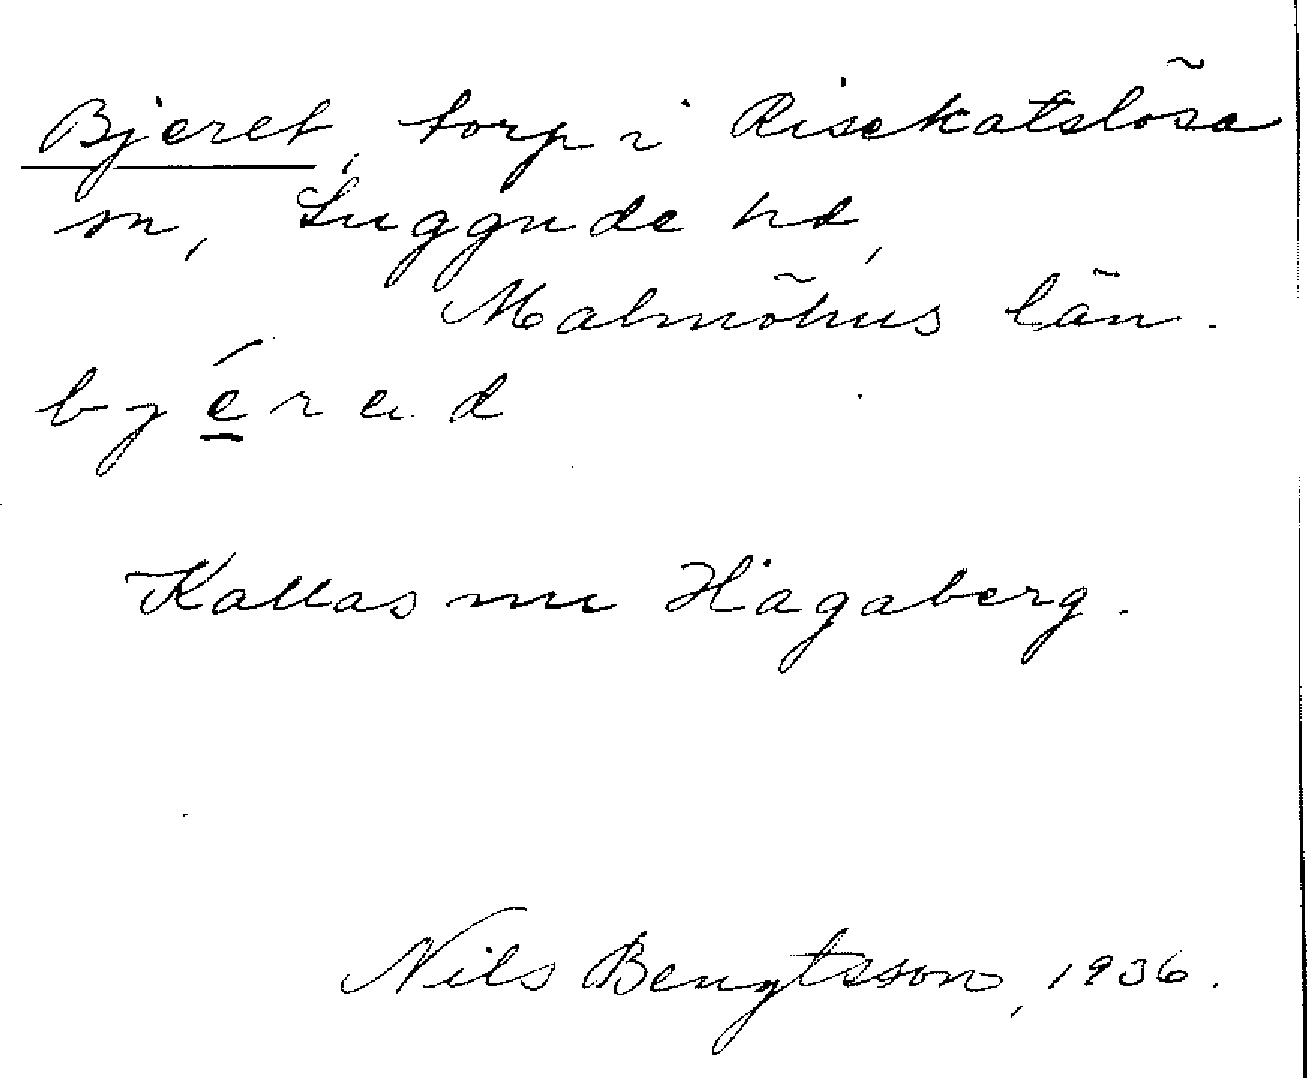 Bjeret, torp i Risekatslösa
sn, Luggude hd,
Malmöhus län.
byérad
Kallas nu Hägaberg.
Nils Bengtsson, 1936.